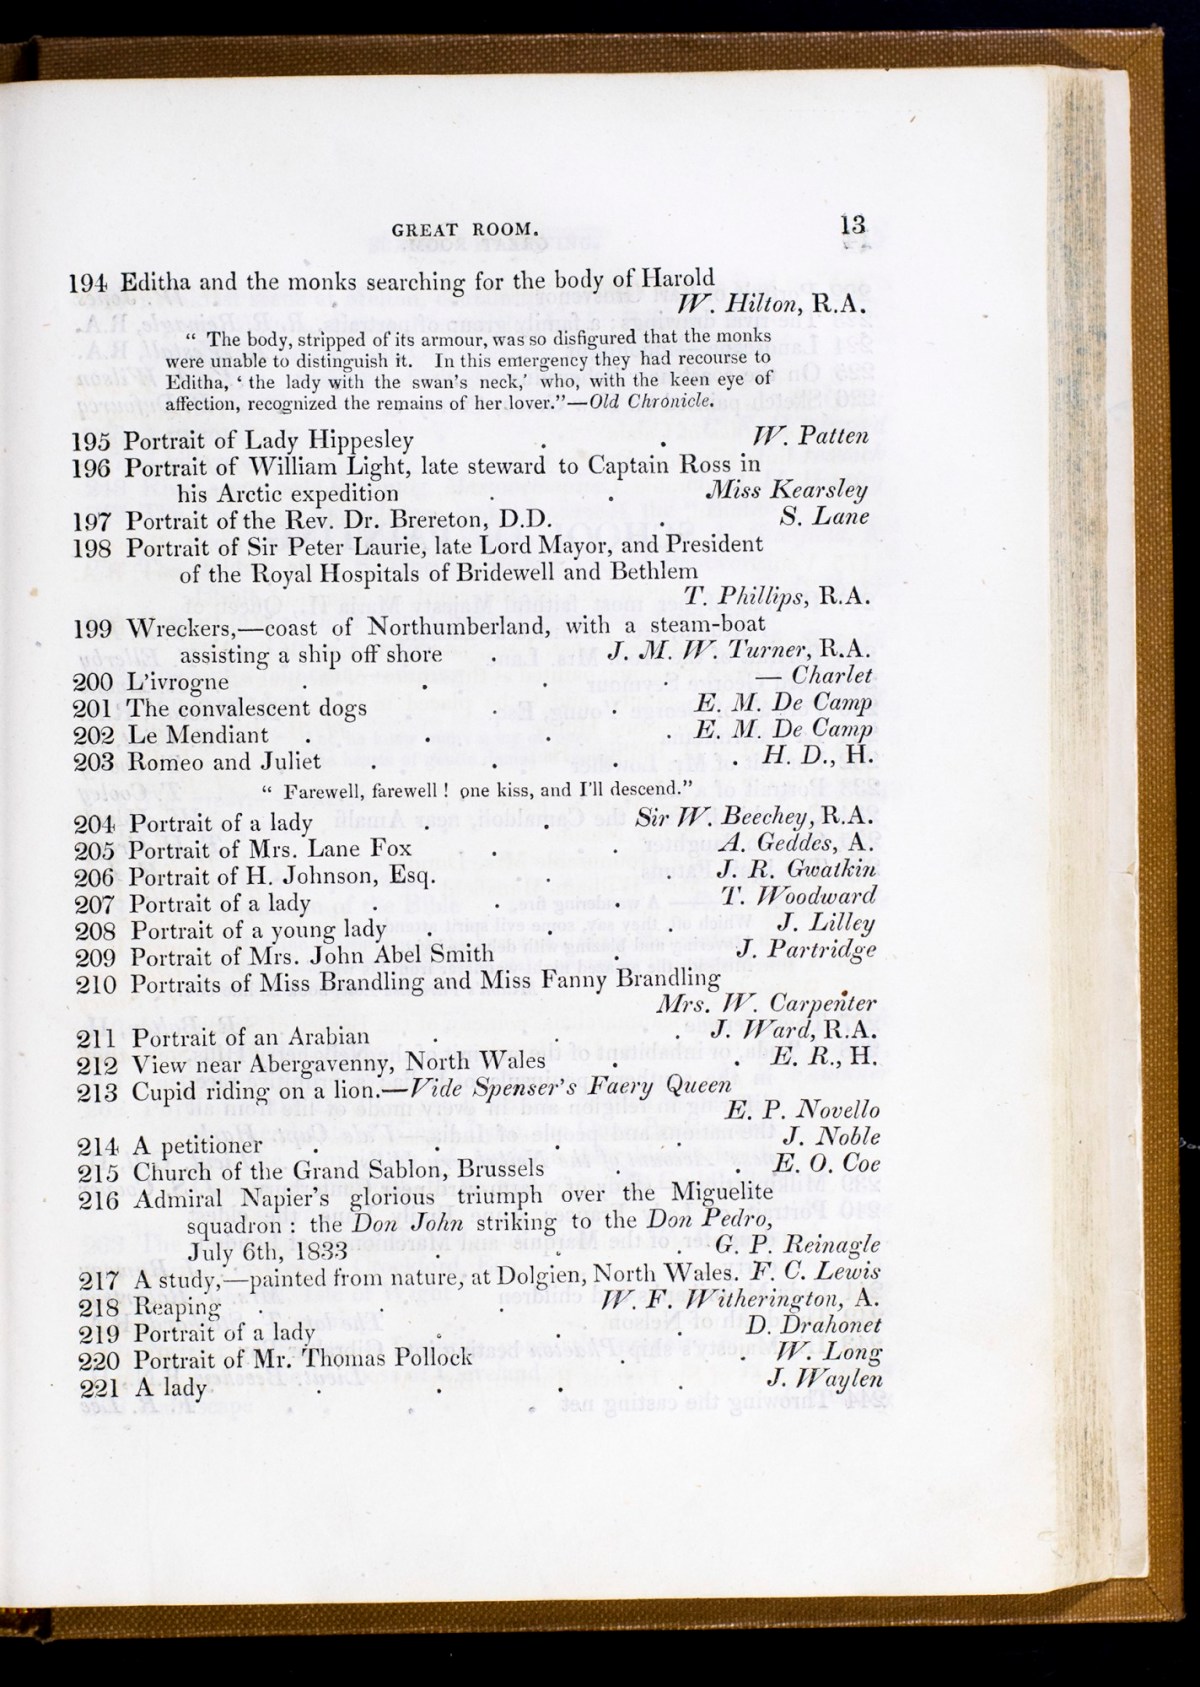 GREAT ROOM. 13
194 Editha and the monks searching for the body of Harold
W. Hilton, R.A.
“ The body, stripped of its armour, was so disfigured that the monks
were unable to distinguish it. In this emergency they had recourse to
Editha, ‘ the lady with the swan’s neck,’ who, with the keen eye of
affection, recognized the remains of her lover.”—Old Chronicle.
195 Portrait of Lady Hippesley . . W. Patten
196 Portrait of William Light, late steward to Captain Ross in
his Arctic expedition . . Miss Kearsley
197 Portrait of the Rev. Dr. Brereton, D.D. . S. Lane
198 Portrait of Sir Peter Laurie, late Lord Mayor, and President
of the Royal Hospitals of Bridewell and Bethlem
T. Phillips, R.A.
199 Wreckers,—coast of Northumberland, with a steam-boat
assisting a ship off shore . J. M. W. Turner, R.A.
200 L’ivrogne . . . . — Charlet
201 The convalescent dogs . . E. M. De Camp
202 Le Mendiant . . . E. M. De Camp
203 Romeo and Juliet . . . . H. D., H.
“ Farewell, farewell ! one kiss, and I’ll descend.”
204 Portrait of a lady . . Sir W. Beechey, R.A.
205 Portrait of Mrs. Lane Fox . . A. Geddes, A.
206 Portrait of H. Johnson, Esq. . . J. R. Gwatkin
207 Portrait of a lady . . . T. Woodward
208 Portrait of a young lady . . . J. Lilley
209 Portrait of Mrs. John Abel Smith . J. Partridge
210 Portraits of Miss Brandling and Miss Fanny Brandling
Mrs. W. Carpenter
211 Portrait of an Arabian . . . J. Ward, R.A.
212 View near Abergavenny, North Wales . . E. R., H.
213 Cupid riding on a lion.—Vide Spenser’s Faery Queen
E. P. Novello
214 A petitioner . . . . J. Noble
215 Church of the Grand Sablon, Brussels . . E. O. Coe
216 Admiral Napier’s glorious triumph over the Miguelite
squadron : the Don John striking to the Don Pedro,
July 6th, 1833 . . . G. P. Reinagle
217 A study,—painted from nature, at Dolgien, North Wales. F. C. Lewis
218 Reaping . . . W. F. Witherington, A.
219 Portrait of a lady . . . D. Drahonet
220 Portrait of Mr. Thomas Pollock . . W. Long
221 A lady . . . . J. Waylen